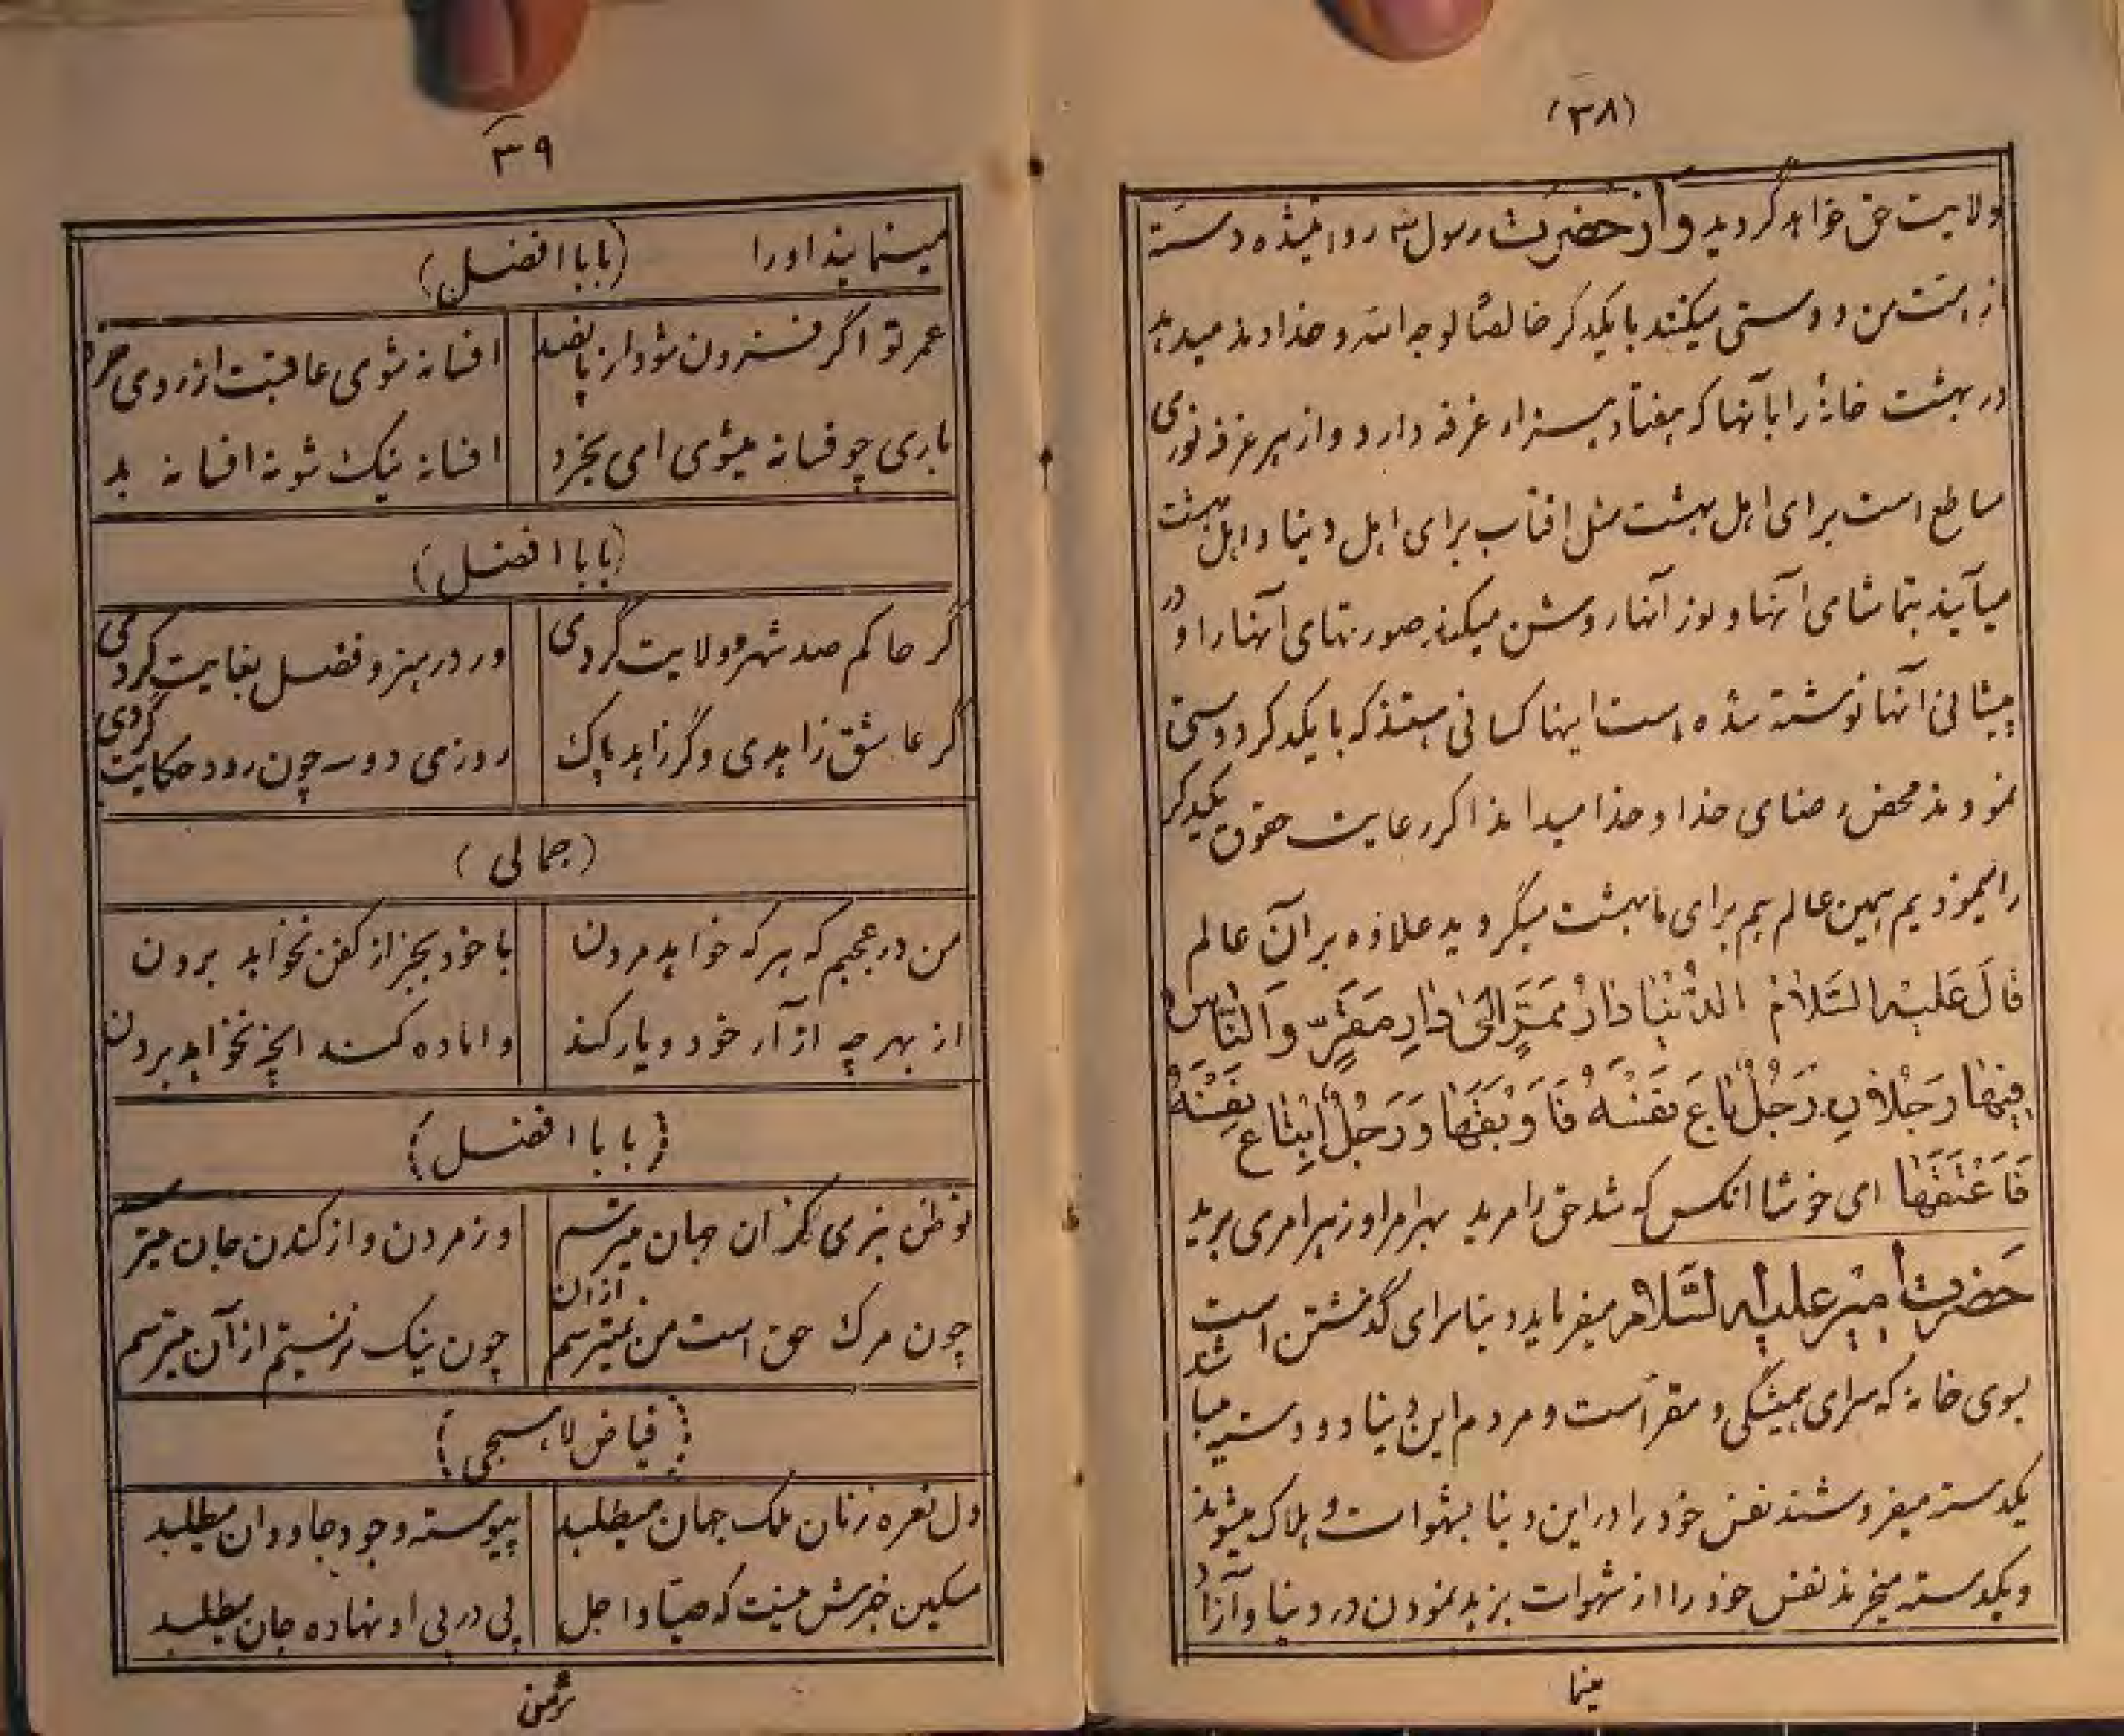 (۳۸)
ولایت حق خواهد گردید و از حضرت رسول روایتشده دسته
از امت من دوستی میکنند با یکدکر خالصاً لوجه الله و خداوند میدهد
در بهشت خانهٔ را بآنها که هفتاد هزار غرفه دارد و از هر غرفه نوری
ساطع است برای اهل بهشت مثل افتاب برای اهل دنیا و اهل بهشت
میآیند بتماشای آنها و نور آنها روشن میکند صورتهای آنها را و در
پیشانی آنها نوشته شده است اینها کسانی هستند که با یکدکر دوستی
نمودند محض رضای خدا و خدا میداند اکر رعایت حقوق یکدکر
را نمودیم همین عالم هم برای ما بهشت میگردید علاوه بر آن عالم
قالَ عَلَیْهِ السَّلامُ الدُّنْیا دارُ مَمَرٍّ اِلیٰ دارِ مَقَرٍّ وَ النّاسُ
فیها رَجُلانِ رَجُلٌ باعَ نَفْسَهُ فَاَوْبَقَها وَ رَجُلٌ اِبْتاعَ نَفْسَهُ
فَاَعْتَقَها ای خوشا انکس که شد حق را مرید بهر امر او زهر امری برید
حضرت امیر علیه السّلام میفرماید دنیا سرای گذشتن است
بسوی خانه که سرای همیشگی و مقر است و مردم این دنیا دو دسته میباشند
یکدسته میفروشند نفس خود را در این دنیا بشهوات و هلاک میشوند
و یکدسته میخرند نفس خود را از شهوات بزهد نمودن در دنیا و آزاد
مینما
۳۹
مینمایند او را (بابا افضل)
عمر تو اگر فزون شود از پانصد افسانه شوی عاقبت از روی خرد
باری چو فسانه میشوی ای بخرد افسانه نیک شو نه افسانه بد
(بابا افضل)
گر حاکم صد شهر و ولایت گردی ور در هنر و فضل بغایت گردی
گر عاشق زاهدی وگر زاهد پاک روزی دو سه چون رود حکایت گردی
(جمالی)
من در عجبم که هر که خواهد مردن با خود بجز از کفن نخواهد بردن
از بهر چه از آر خود و یار کند و اماده کند انچه نخواهد بردن
(بابا افضل)
تو ظن نبری کز ان جهان میترسم وز مردن و از کندن جان میترسم
چون مرک حق است من نمیترسم ازان چون نیک نزیستم از آن میترسم
(فیاض لاهیجی)
دل نعره زنان ملک جهان میطلبد پیوسته وجود جاودان میطلبد
مسکین خبرش نیست که صیّاد اجل پی در پی او نهاده جان میطلبد